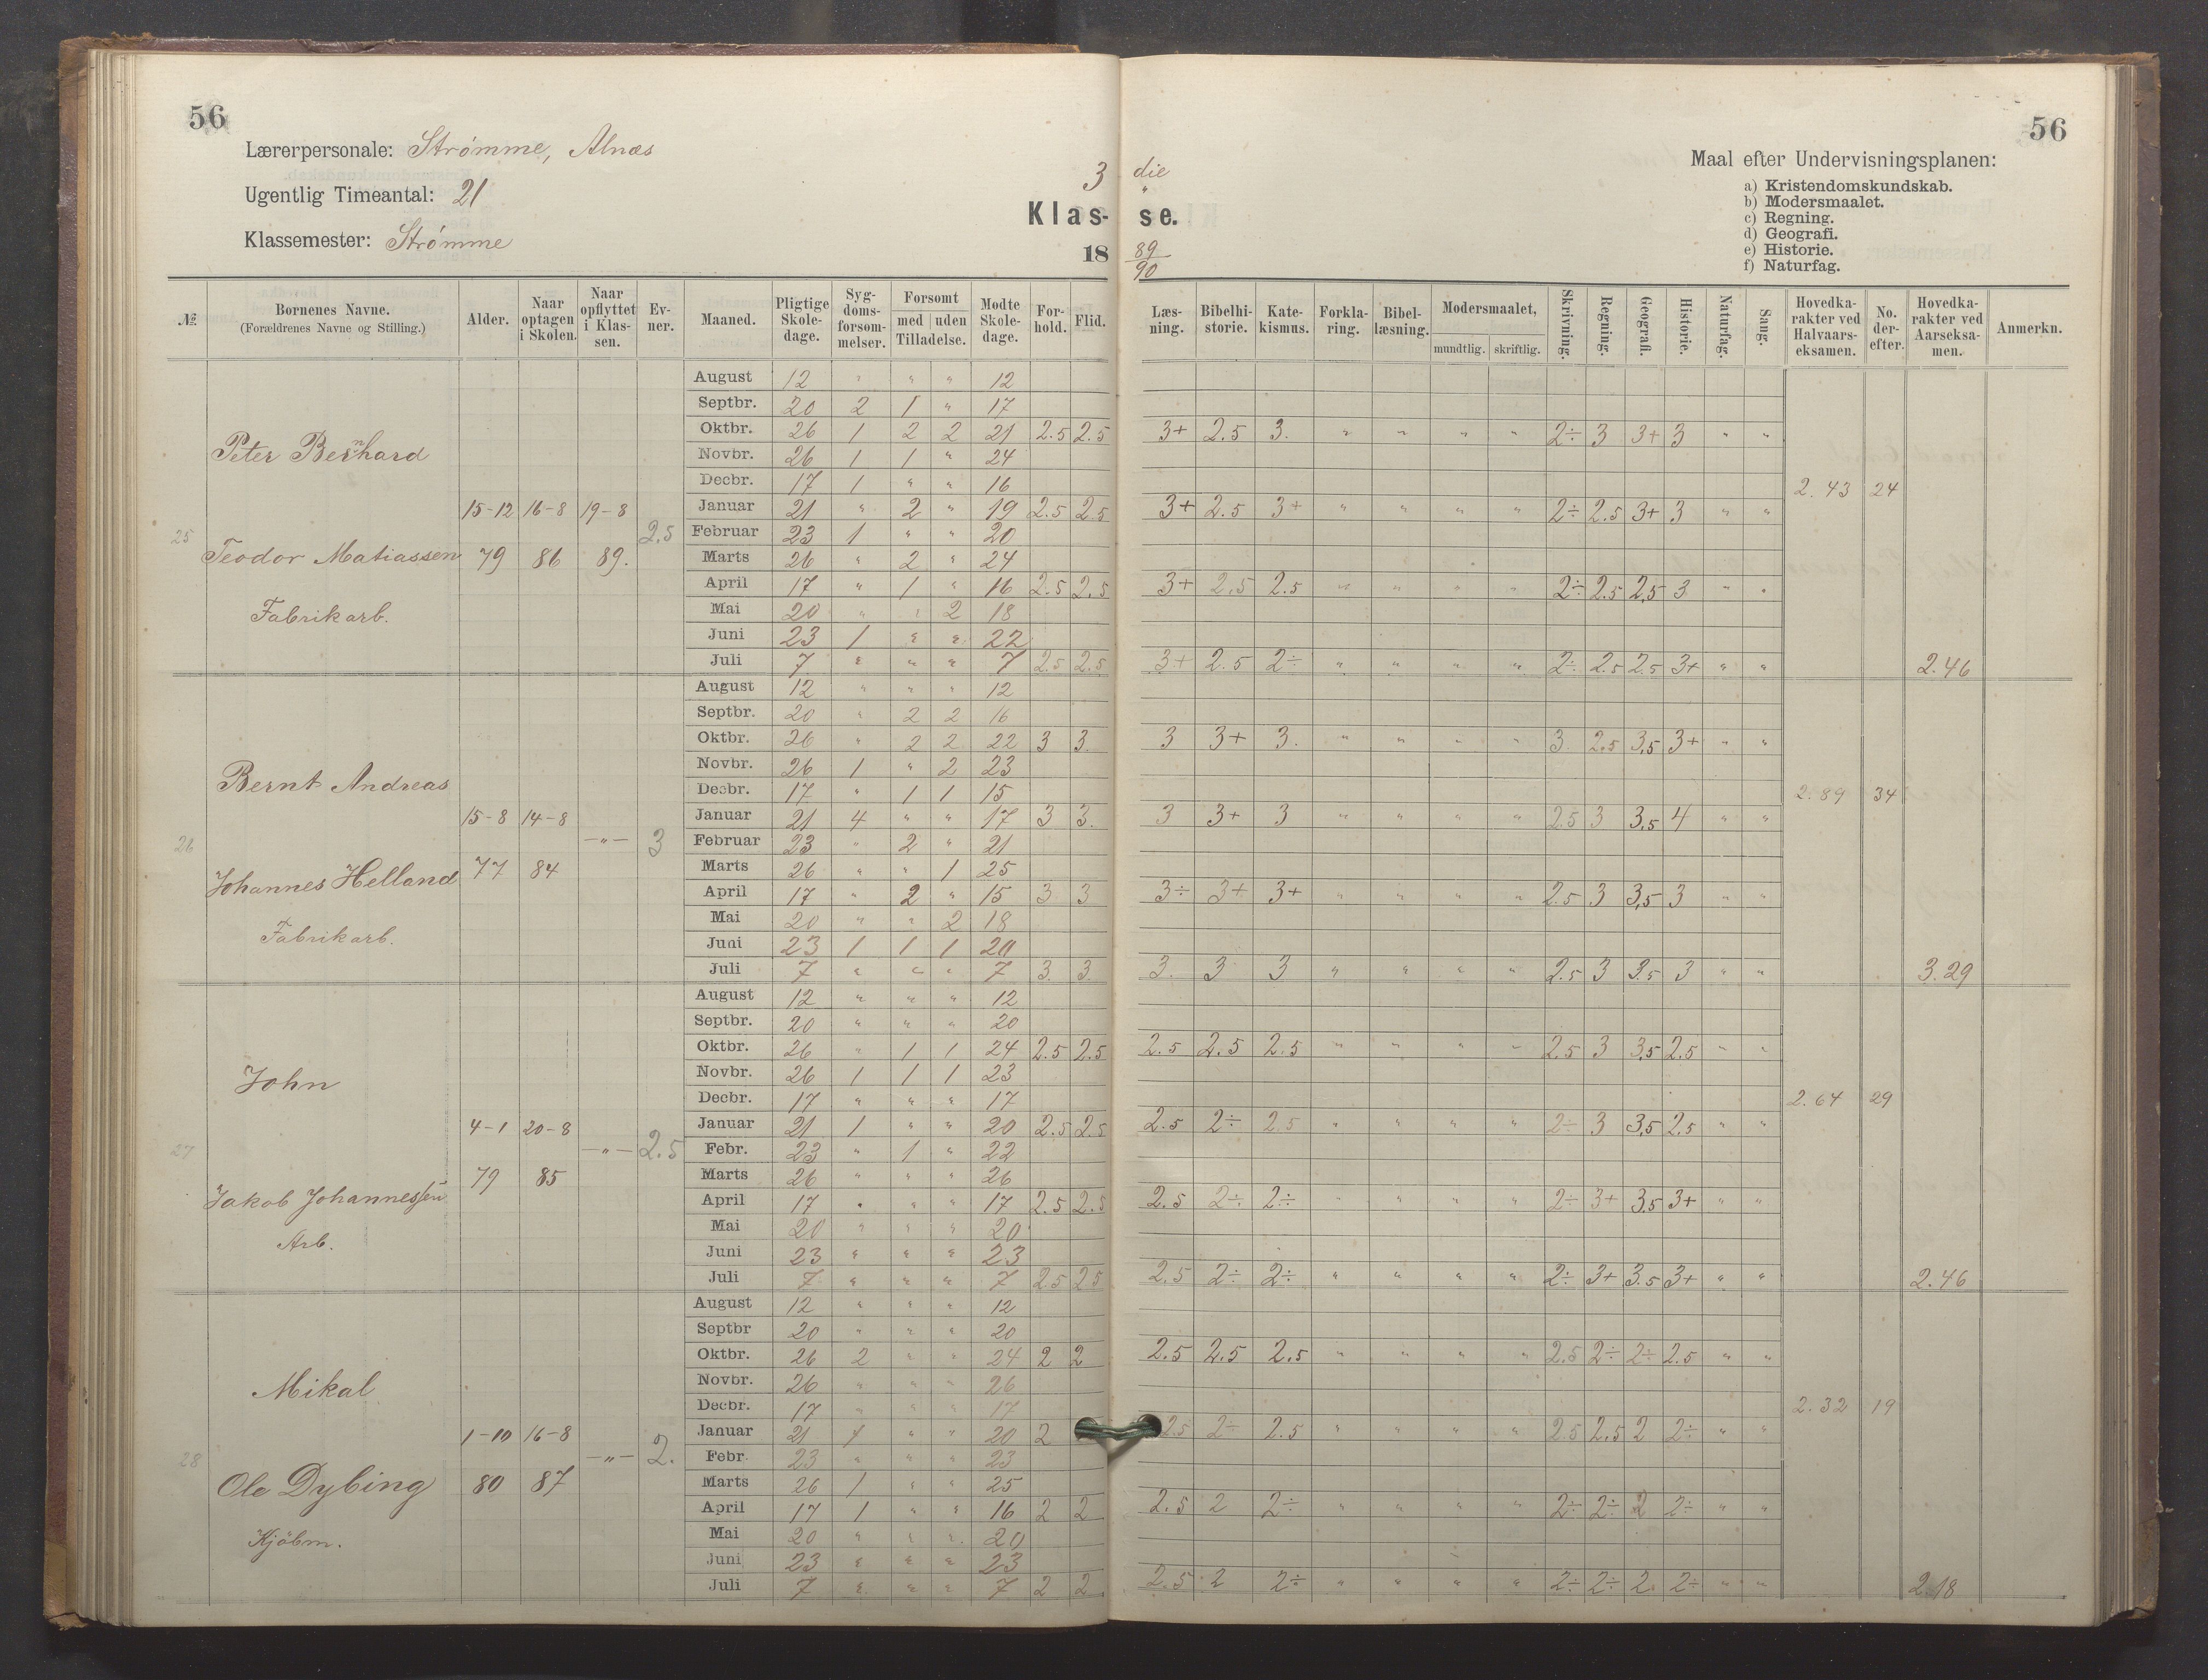 56
56
Lærerpersonale: Strømme, Alnæs
Ugentlig Timeantal: 21
Klassemester: Strømme
3 die
Klas- se.
18 89/90
Maal efter Undervisningsplanen:
a) Kristendomskundskab.
b) Modersmaalet.
c) Regning.
d) Geografi.
e) Historie.
f) Naturfag.
№ Bornenes Navne. (Forældrenes Navne og Stilling.) Alder. Naar optagen i Skolen. Naar opflyttet i Klassen. Evner. Maaned. Pligtige Skoledage. Sygdomsforsommelser. Forsomt med uden Tilladelse. Modte Skoledage. Forhold. Flid. Læsning. Bibelhistorie. Katekismus. Forklaring. Bibellæsning. Modersmaalet, mundtlig. skriftlig. Skrivning. Regning. Geografi. Historie. Naturfag. Sang. Hovedkarakter ved Halvaarseksamen. No. derefter. Hovedkarakter ved Aarseksamen. Anmerkn.
25 Peter Bernhard
Teodor Matiassen
Fabrikarb.
15-12 79 16-8 86 19-8 89. 2.5
August 12 " " " 12
Septbr. 20 2 1 " 17
Oktbr. 26 1 2 2 21 2.5 2.5 3+ 2.5 3. " " " " 2÷ 3 3+ 3 " "
Novbr. 26 1 1 " 24
Decbr. 17 1 " " 16
2.43 24
Januar 21 " 2 " 19 2.5 2.5 3+ 2.5 3+ " " " " 2÷ 2.5 3+ 3 " "
Februar 23 1 " " 20
Marts 26 " 2 " 24
April 17 " 1 " 16 2.5 2.5 3+ 2.5 2.5 " " " " 2÷ 2.5 2,5 3 " "
Mai 20 " " 2 18
Juni 23 1 " " 22
Juli 7 " " " 7 2.5 2.5 3+ 2.5 2÷ " " " " 2÷ 2.5 2.5 3+ " " 2.46
26 Bernt Andreas
Johannes Helland
Fabrikarb.
15-8 77 14-8 84 -"- 3
August 12 " " " 12
Septbr. 20 " 2 2 16
Oktbr. 26 " 2 2 22 3 3. 3 3+ 3. " " " " 3 2,5 3,5 3+ " "
Novbr. 26 1 " 2 23
Decbr. 17 " 1 1 15
2.89 34
Januar 21 4 " " 17 3 3. 3 3+ 3 " " " " 2.5 3 3,5 4 " "
Februar 23 " 2 " 21
Marts 26 " " 1 25
April 17 " 2 " 15 3 3 3÷ 3+ 3+ " " " " 2.5 3 3,5 3 " "
Mai 20 " " 2 18
Juni 23 1 1 1 20
Juli 7 " " " 7 3. 3. 3. 3 3 " " " " 2.5 3 3.5 3 " " 3.29
27 John
Jakob Johannessen
Arb.
4-1 79 20-8 85 -"- 2.5
August 12 " " " 12
Septbr. 20 " " " 20
Oktbr. 26 " 1 1 24 2.5 2.5 2.5 2.5 2.5 " " " " 2.5 3 3,5 2.5 " "
Novbr. 26 1 1 1 23
Decbr. 17 " " " 17
2.64 29
Januar 21 1 " " 20 2.5 2.5 2.5 2÷ 2.5 " " " " 2÷ 3 3,5 2.5 " "
Febr. 23 " 1 " 22
Marts 26 " " " 26
April 17 " " " 17 2.5 2.5 2.5 2÷ 2÷ " " " " 2÷ 3+ 3.5 3+ " "
Mai 20 " " " 20
Juni 23 " " " 23
Juli 7 " " " 7 2.5 2.5 2.5 2÷ 2÷ " " " " 2÷ 3+ 3.5 3+ " " 2.46
28 Mikal
Ole Dybing
Kjöbm.
1-10 80 16-8 87 -"- 2.
August 12 " " " 12
Septbr 20 " " " 20
Oktbr. 26 2 " " 24 2 2 2.5 2.5 2.5 " " " " 2.5 2÷ 2÷ 2.5 " "
Novbr. 26 " " " 26
Decbr. 17 " " " 17
2.32 19
Januar 21 1 " " 20 2 2.5 2÷ 2.5 " " " " 2.5 2.5 2 2÷ " "
Febr. 23 " " " 23
Marts 26 1 " " 25
April 17 1 " " 16 2 2 2.5 2 2÷ " " " " 2÷ 2÷ 2 2÷ " "
Mai 20 " " " 20
Juni 23 " " " 23
Juli 7 " " " 7 2 2 2.5 2 2÷ " " " " 2÷ 2÷ 2. 2÷ " " 2.18